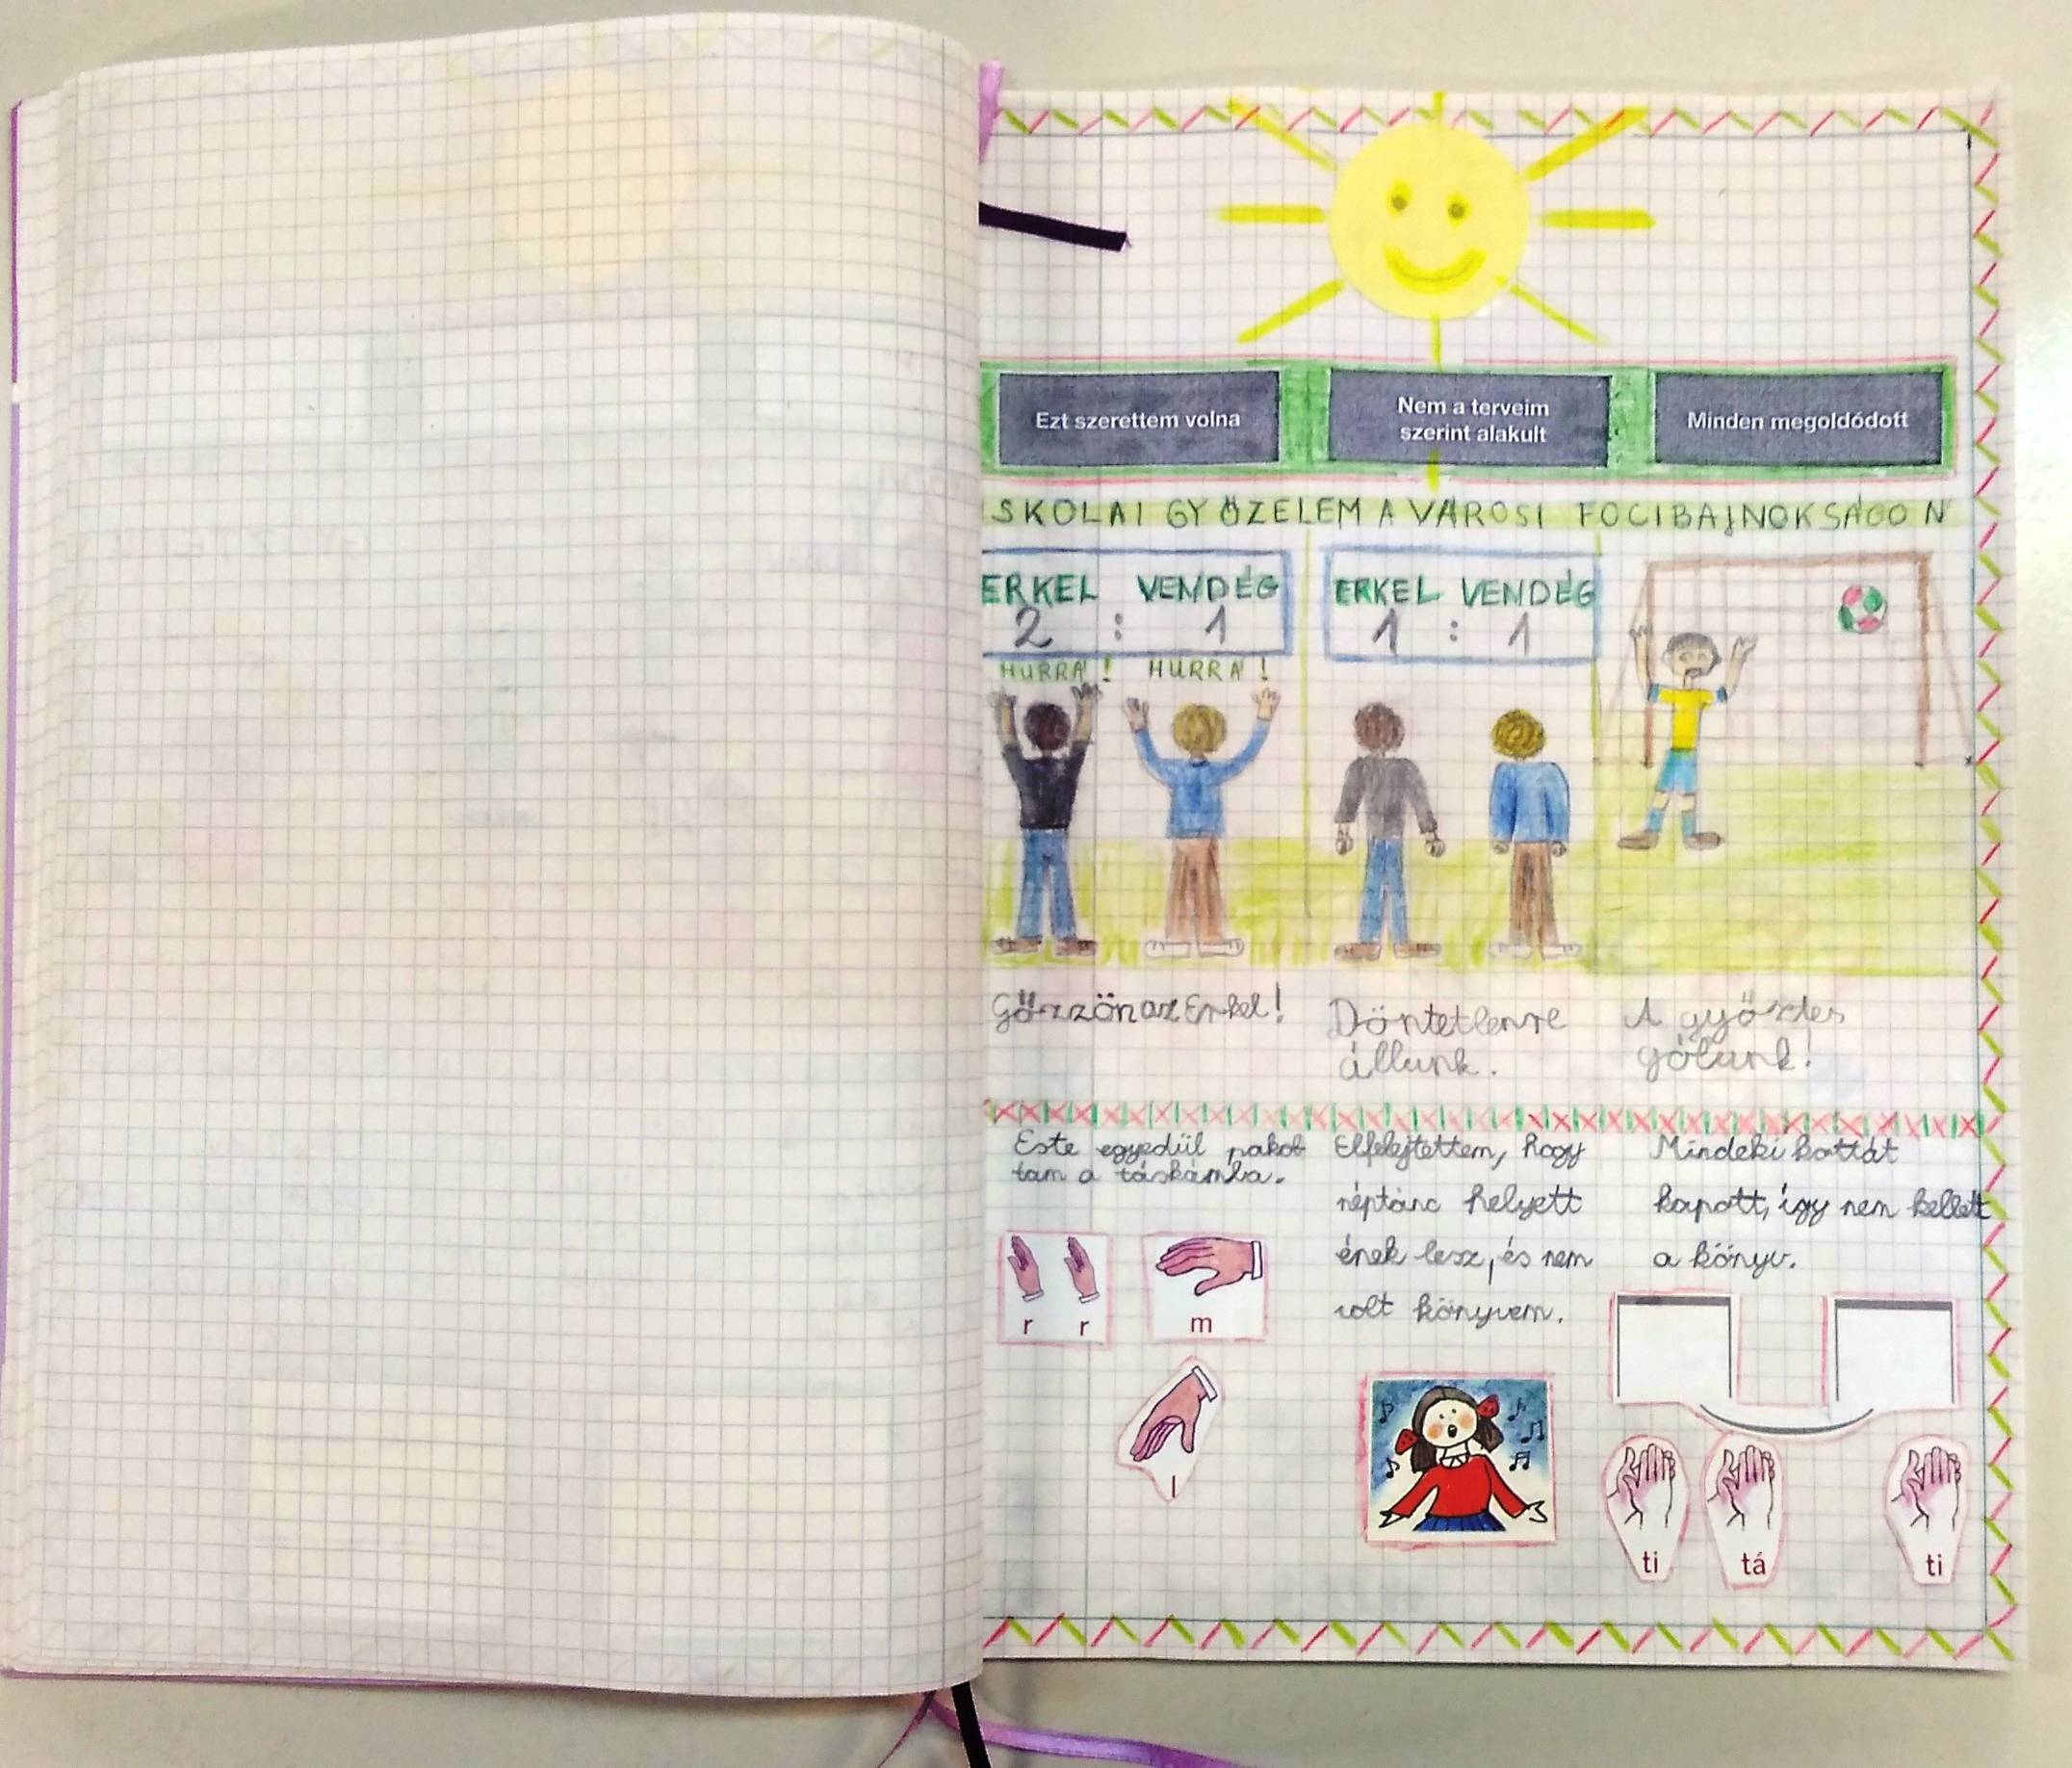 Ezt szerettem volna
Nem a terveim
szerint alakult
Minden megoldódott
ISKOLAI GYŐZELEM A VÁROSI FOCIBAJNOKSÁGON
ERKEL VENDÉG
2 : 1
HURRÁ! HURRÁ!
ERKEL VENDÉG
1 : 1
Győzzön az Erkel!
Döntetlenre
állunk.
A győztes
gólunk!
Este egyedül pakol
tam a táskámba.
Elfelejtettem, hogy
néptánc helyett
ének lesz, és nem
volt könyvem.
Mindeki kottát
kapott, így nem kellett
a könyv.
r r
m
l
ti tá ti